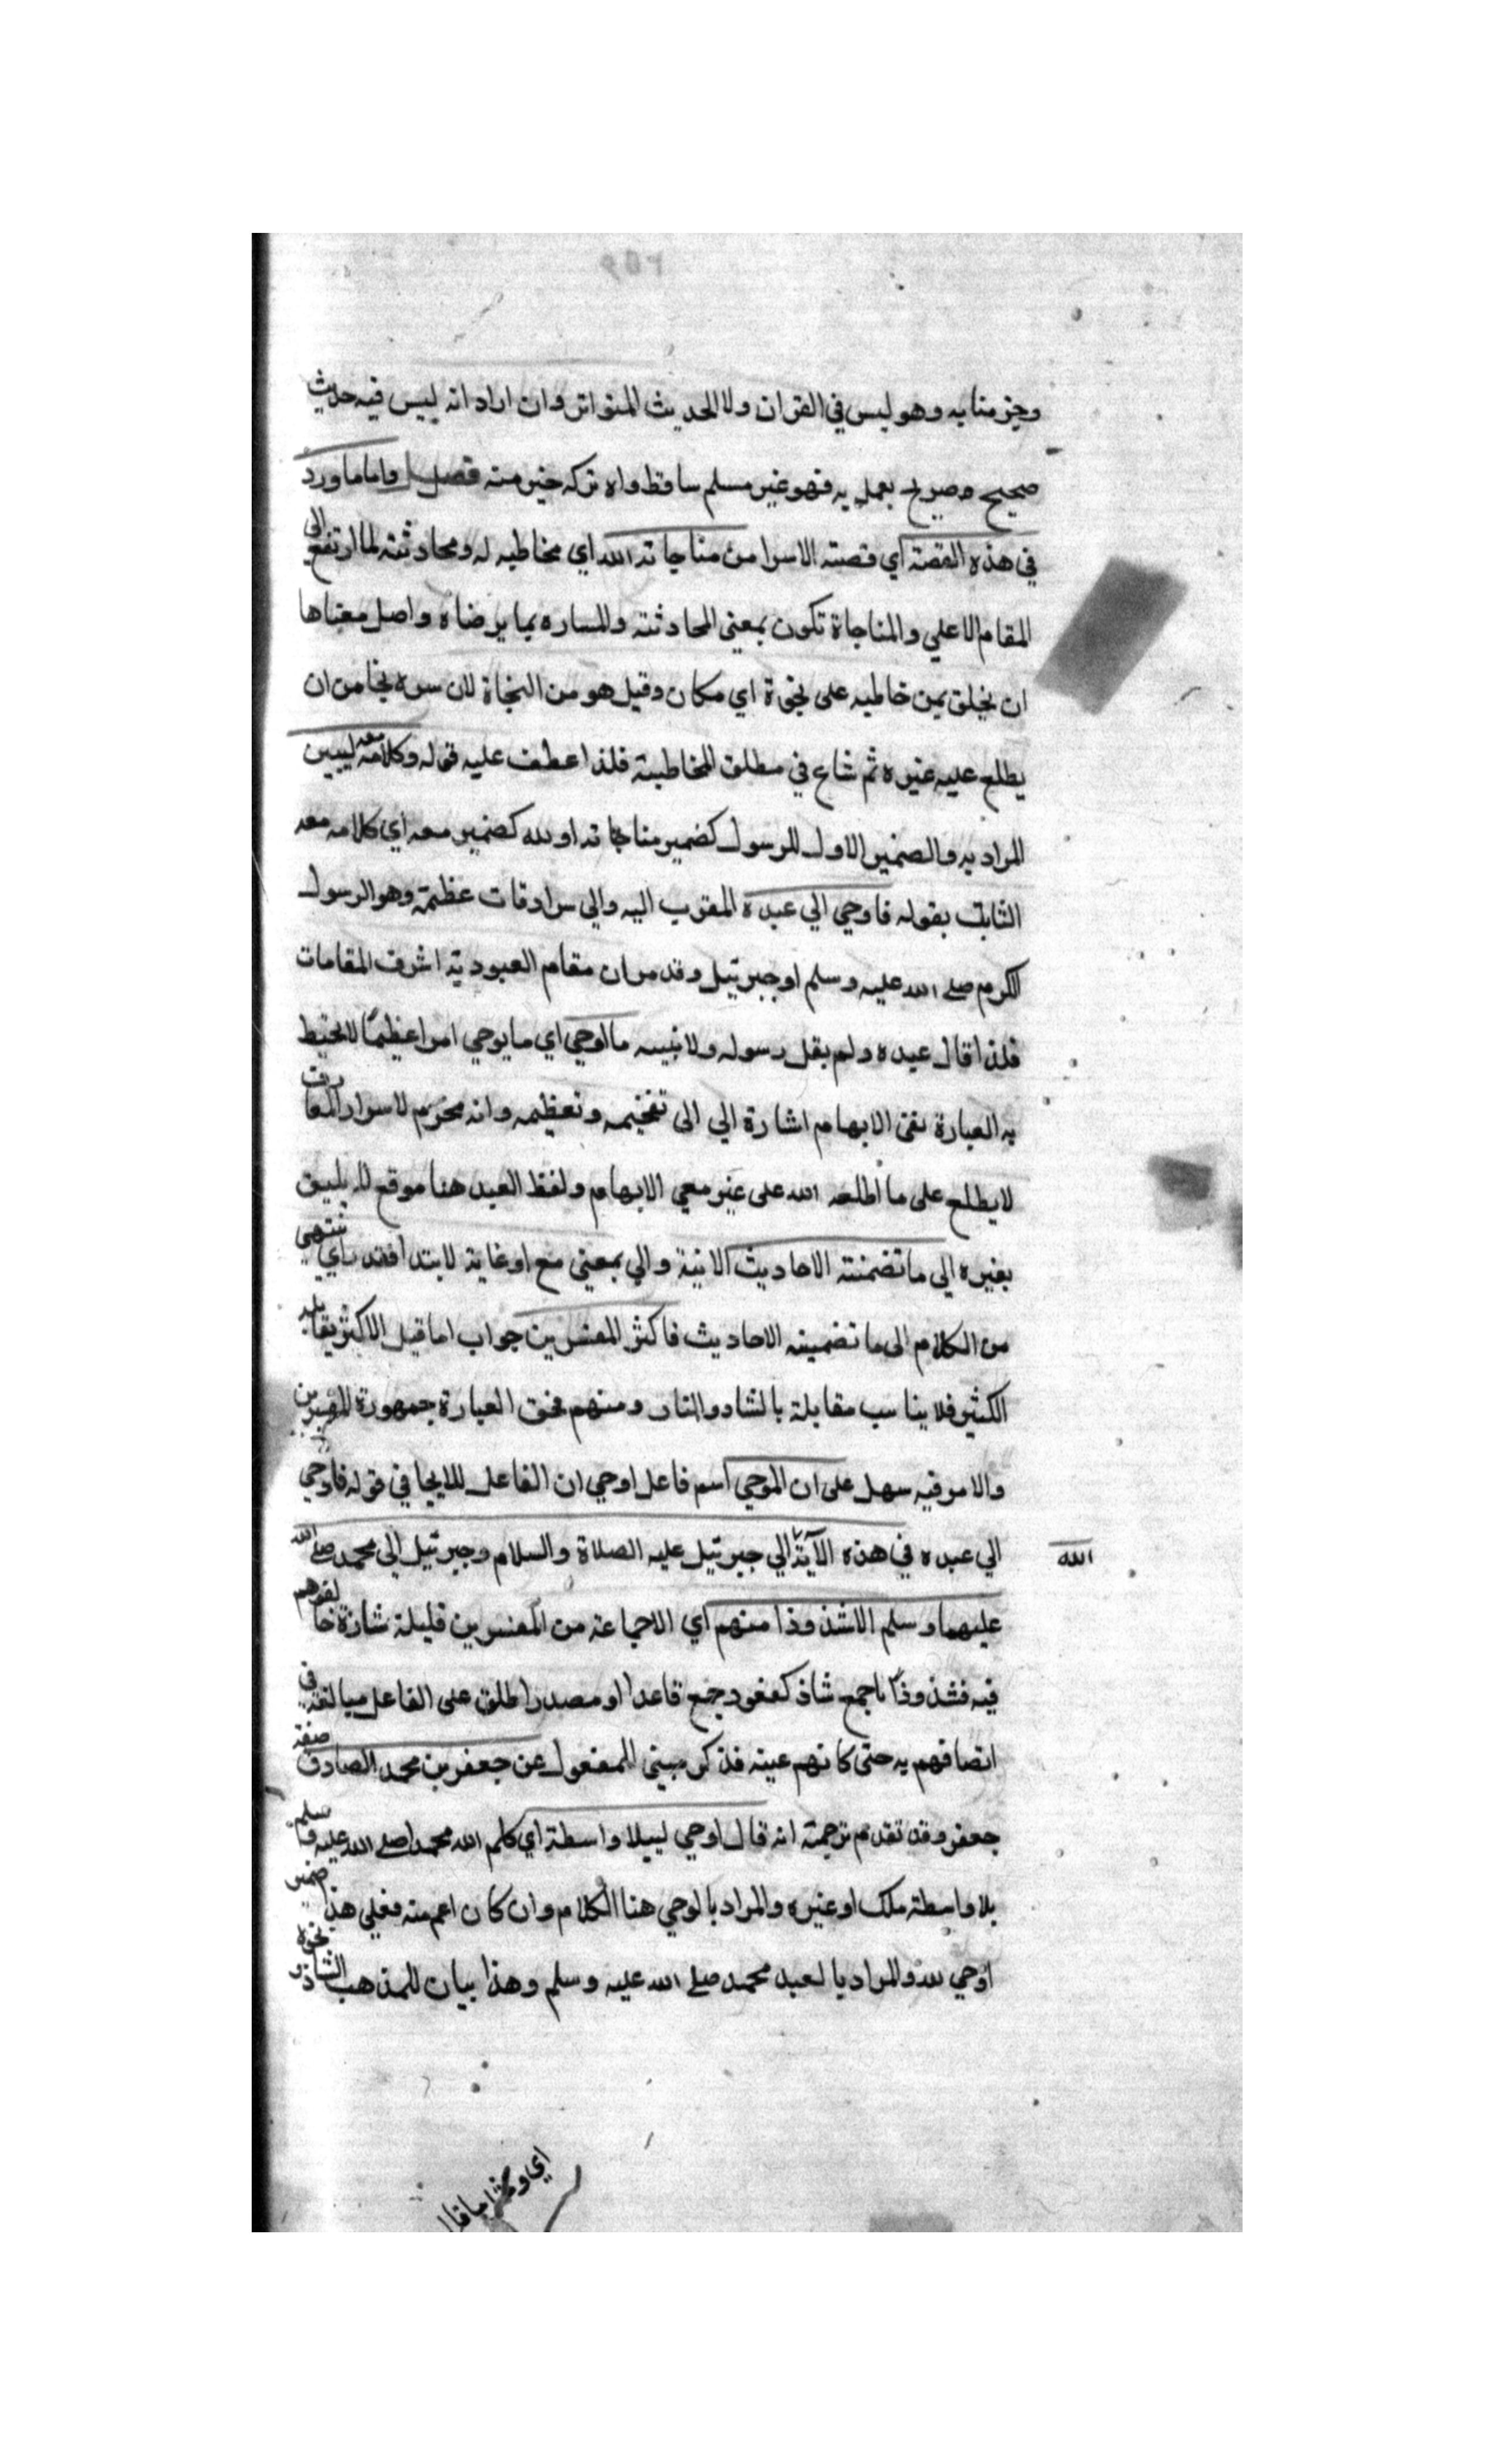 وجزمنا به وهو ليس في القران ولا الحديث المتواتر وان اراد انه ليس فيه حديث
صحيح وصريح يعمل به فهو غير مسلم ساقط واه تركه خير منه فصل واما ما ورد
في هذه القصة اي قصة الاسرا من مناجاته الله اي مخاطبه له ومحادثته لما ارتفع الى
المقام الاعلي والمناجاة تكون بمعنى المحادثة والمساره بما يرضاه واصل معناها
ان يخلق بمن خاطبه على نجوة اي مكان وقيل هو من النجاة لان سره نجا من ان
يطلع عليه غيره ثم شاع في مطلق المخاطبة فلذا عطف عليه قوله وكلامه معه ليبين
المراد به والضمير الاول للرسول كضمير مناجاته او لله كضمير معه اي كلامه معه
الثابت بقوله فاوحي الي عبده المقرب اليه والي سرادقات عظمته وهو الرسول
الكرم صلي الله عليه وسلم او جبرئيل وقد مر ان مقام العبودية اشرف المقامات
فلذا قال عبده ولم يقل رسوله ولا نبيه ما اوحي اي ما يوحي امرا عظيما لا تحيط
به العبارة ففي الابهام اشارة الي الى تفخيمه وتعظيمه وانه محرم لاسرار المعارف
لا يطلع على ما اطلعه الله على غير معي الابهام ولفظ العبد هنا موقع لا يليق
بغيره الى ما تضمنته الاحاديث الاتية والي بمعنى مع او غاية لابتدا فقد باي ننتهى
من الكلام الى ما تضمينه الاحاديث فاكثر المفسرين جواب اما قيل الاكثر يقابله
الكثير فلا يناسب مقابلة بالشاد والنار ومنهم فحق العبارة جمهورة المفسرين
والامر فيه سهل على ان الموحي اسم فاعل اوحي ان الفاعل للايحا في قوله فاوحي
الي عبده في هذه الآية الي جبرئيل عليه الصلاة والسلام وجبرئيل الي محمد صلى الله
الله
عليهما وسلم الا شذوذا منهم اي الاجماعة من المفسرين قليلة شاذة خالفوهم
فيه فشذوذا جمع شاذ كعقود جمع قاعدا او مصدر اطلق على الفاعل مبالغة في
اتصافهم به حتى كانهم عينه فذكر مبني للمفعول عن جعفر بن محمد الصادق صفة
جعفر وقد تقدم ترجمته انه قال اوحي ليبلا واسطة اي كلم الله محمدا صلي الله عليه وسلم
بلا واسطة ملك او غيره والمراد بالوحي هنا الكلام وان كان اعم منه فعلي هذا ضمير
اوحي لله والمراد بالعبد محمد صلى الله عليه وسلم وهذا بيان للمذهب الشاذ